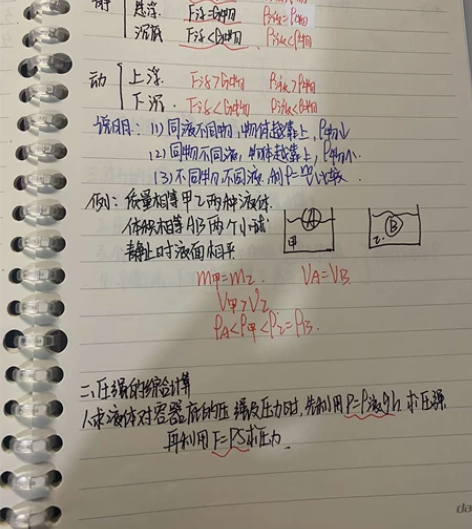 静 悬浮 F浮=G物 ρ液=ρ物
沉底 F浮<G物 ρ液<ρ物
动 上浮 F浮>G物 ρ液>ρ物
下沉. F浮<G物 ρ液<ρ物
说明: (1) 同液不同物,物体越靠上,ρ物↓
(2) 同物不同液,物体越靠上,ρ
(3) 不同物不同液,利 比较.
例: 质量相等甲乙两种液体.
体积相等AB两个小球
静止时液面相平
A
甲
B
乙
m甲=m乙 VA=VB
V甲>V乙
ρA<ρ甲<ρ乙=ρB.
二、压强的综合计算
1、求液体对容器底的压强及压力时,先利用P=ρ液gh 求压强
再利用F=PS求压力
da